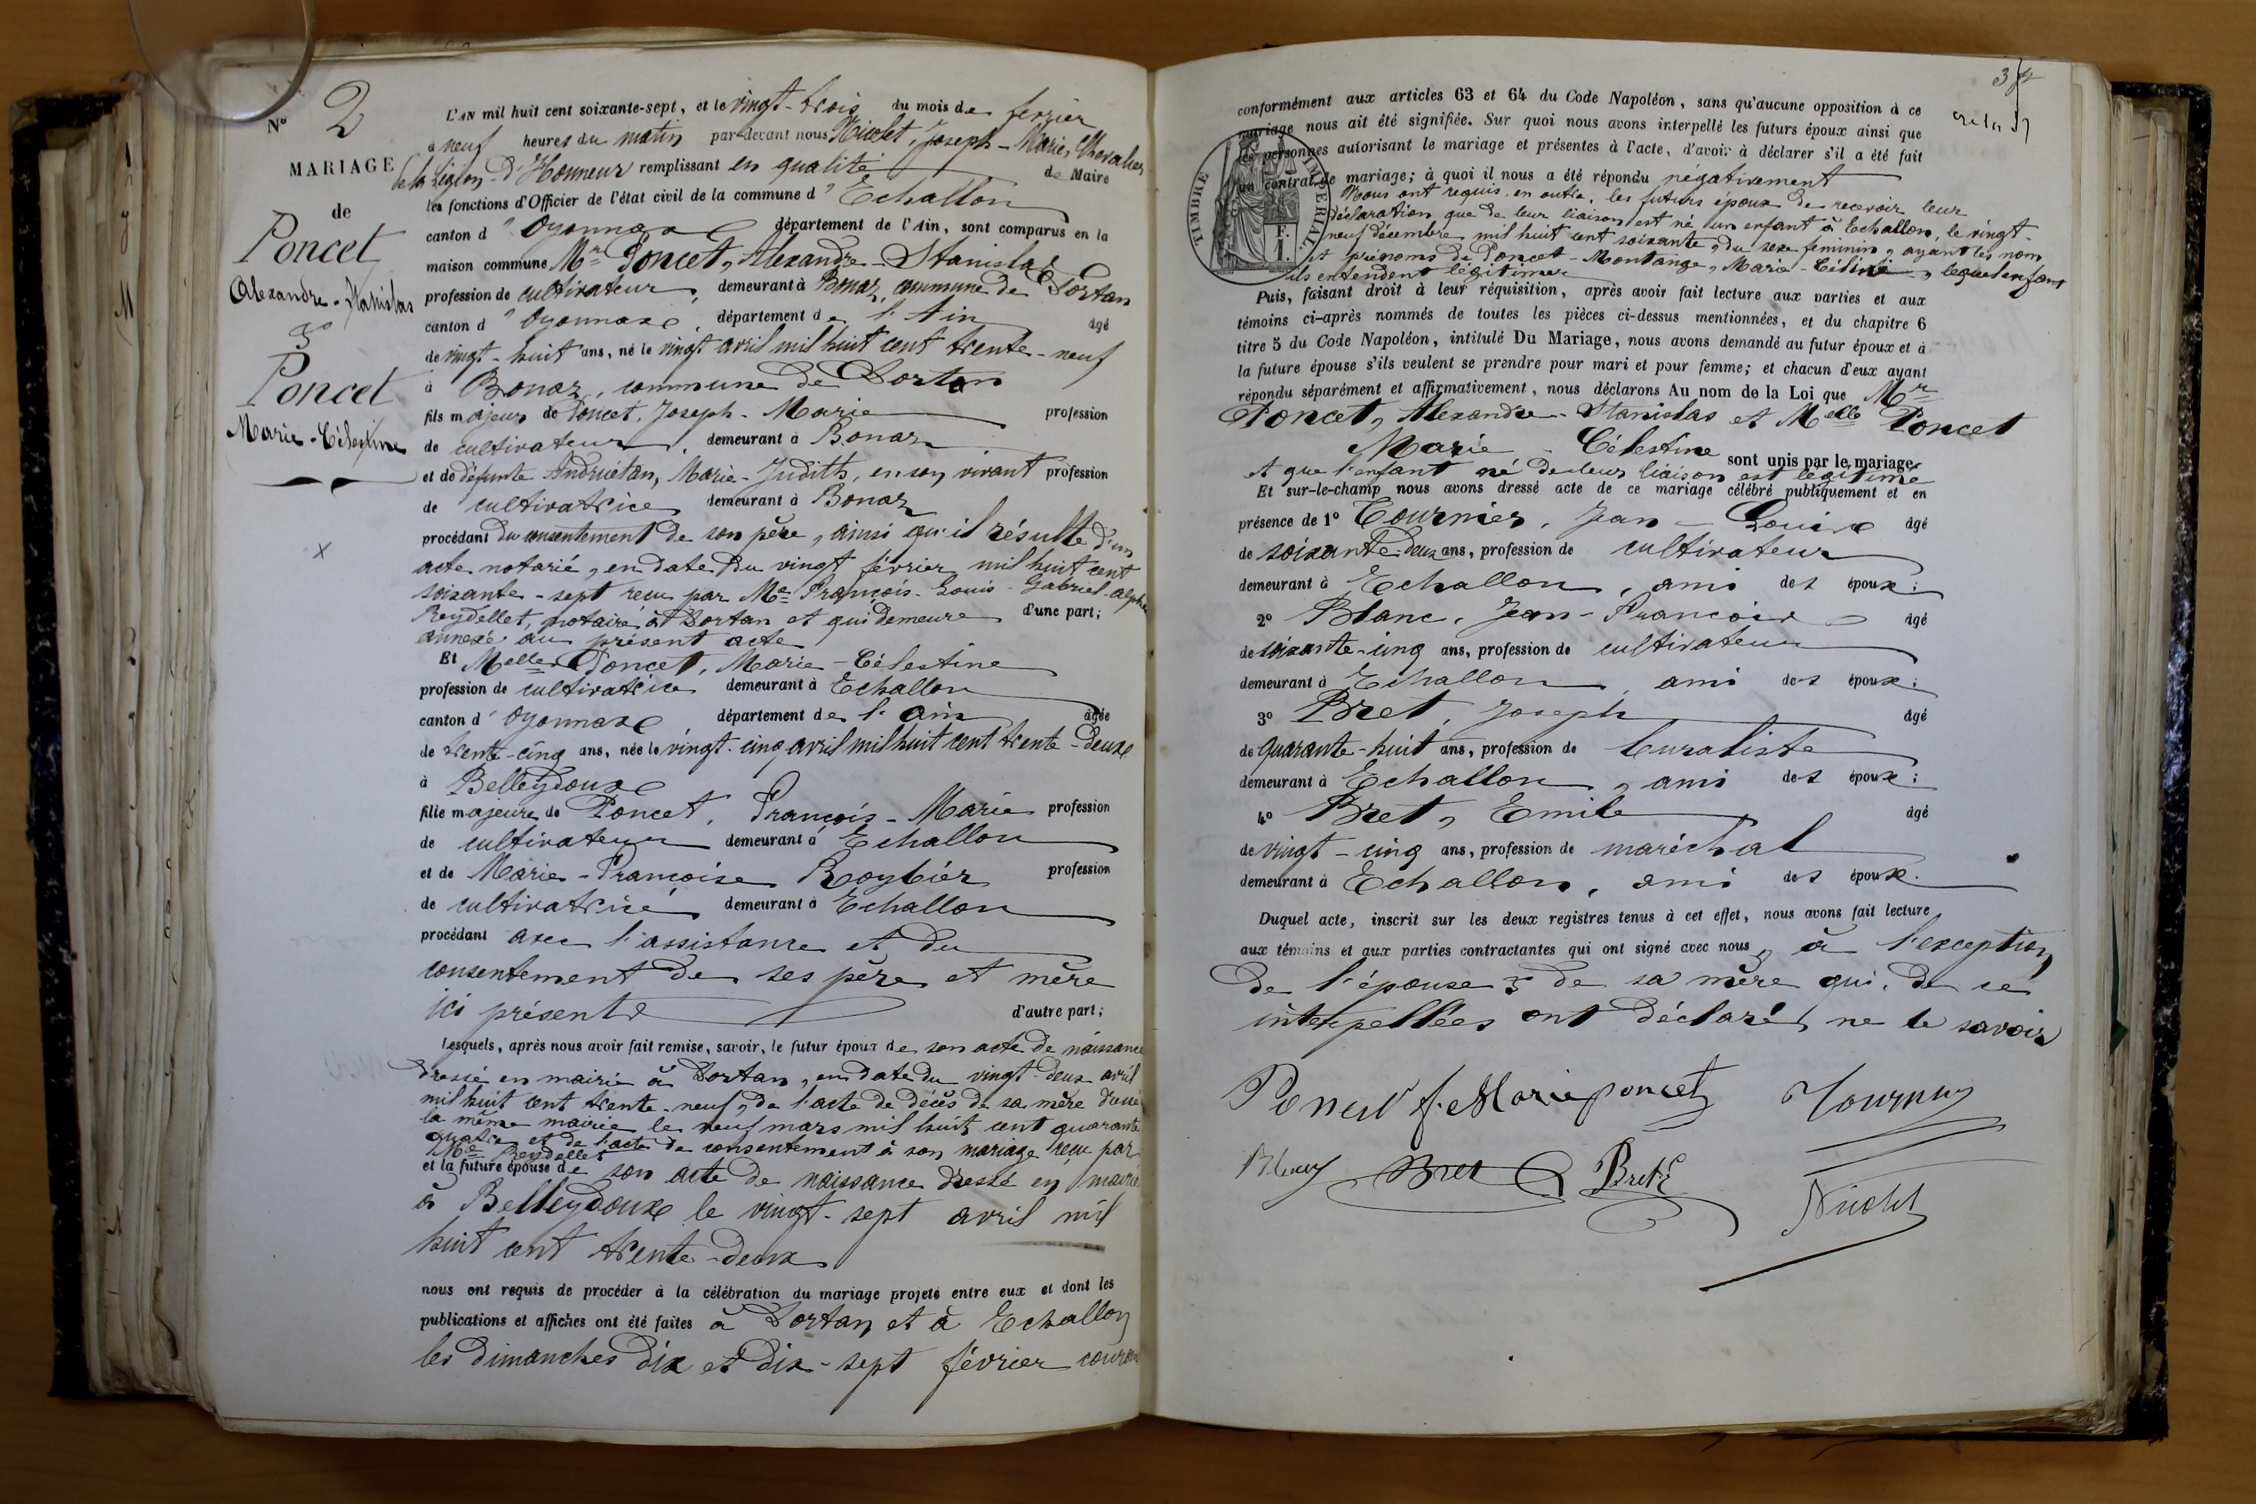 Nº 2
MARIAGE
de
Poncet
Alexandre-Stanislas
&
Poncet
Marie-Célestine
L'AN mil huit cent soixante-sept, et le vingt-trois du mois de fevrier
à neuf heures du matin par-devant nous Nicolet, Joseph-Marie, Chevalier
de la Légion d'Honneur remplissant en qualité de Maire
les fonctions d'Officier de l'état civil de la commune d'Echallon
canton d'Oyonnax département de l'Ain, sont comparus en la
maison commune Mr Poncet, Alexandre-Stanislas
profession de cultivateur, demeurant à Bonaz, commune de Dortan
canton d'Oyonnax, département de l'Ain âgé
de vingt-huit ans, né le vingt avril mil huit cent trente-neuf
à Bonaz, commune de Dortan
fils majeur de Poncet, Joseph-Marie profession
de cultivateur, demeurant à Bonaz
et de défunte Andruétan, Marie-Judith, en son vivant profession
de cultivatrice demeurant à Bonaz
procédant du consentement de son père, ainsi qu'il résulte d'un
acte notarié, en date du vingt février mil huit cent
soixante-sept reçu par Me François-Louis-Gabriel-Alph
Reydellet, notaire à Dortan et qui demeure d'une part;
annexé au présent acte
Et Melle Poncet, Marie-Célestine
profession de cultivatrice demeurant à Echallon
canton d'Oyonnax département de l'Ain âgée
de trente-cinq ans, née le vingt-cinq avril mil huit cent trente-deux
à Belleydoux
fille majeure de Poncet, François-Marie profession
de cultivateur demeurant à Echallon
et de Marie-Françoise Roybier profession
de cultivatrice demeurant à Echallon
procédant avec l'assistance et du
consentement de ses père et mère
ici présents d'autre part;
Lesquels, après nous avoir fait remise, savoir, le futur époux de son acte de naissance
dressé en mairie à Dortan, en date du vingt-deux avril
mil huit cent trente-neuf, de l'acte de décès de sa mère
la même mairie le neuf mars mil huit cent quarante
quatre et de l'acte de consentement à son mariage reçu par
Me Reydellet
et la future épouse de son acte de naissance dressé en mairie
à Belleydoux le vingt-sept avril mil
huit cent trente-deux
nous ont requis de procéder à la célébration du mariage projeté entre eux et dont les
publications et affiches ont été faites à Dortan et à Echallon
les dimanches dix et dix-sept février courant
conformément aux articles 63 et 64 du Code Napoléon, sans qu'aucune opposition à ce
mariage nous ait été signifiée. Sur quoi nous avons interpellé les futurs époux ainsi que
les personnes autorisant le mariage et présentes à l'acte, d'avoir à déclarer s'il a été fait
un contrat de mariage; à quoi il nous a été répondu négativement
TIMBRE IMPERIAL
Nous ont requis, en outre, les futurs époux de recevoir leur
déclaration que de leur liaison est né un enfant à Echallon, le vingt-
neuf décembre mil huit cent soixante, du sexe feminin, ayant les nom
et prénoms de Poncet-Montange, Marie-Céline, lequel enfant
ils entendent légitimer
Puis, faisant droit à leur réquisition, après avoir fait lecture aux parties et aux
témoins ci-après nommés de toutes les pièces ci-dessus mentionnées, et du chapitre 6
titre 5 du Code Napoléon, intitulé Du Mariage, nous avons demandé au futur époux et à
la future épouse s'ils veulent se prendre pour mari et pour femme; et chacun d'eux ayant
répondu séparément et affirmativement, nous déclarons Au nom de la Loi que Mr
Poncet, Alexandre-Stanislas et Melle Poncet
Marie-Célestine sont unis par le mariage
et que l'enfant né de leur liaison est légitimé
Et sur-le-champ nous avons dressé acte de ce mariage célébré publiquement et en
présence de 1º Tournier, Jean-Louis âgé
de soixante-deux ans, profession de cultivateur
demeurant à Echallon, ami des époux;
2º Blanc, Jean-François âgé
de soixante-cinq ans, profession de cultivateur
demeurant à Echallon, ami des époux;
3º Bret, Joseph âgé
de quarante-huit ans, profession de buraliste
demeurant à Echallon, ami des époux;
4º Bret, Emile âgé
de vingt-cinq ans, profession de maréchal
demeurant à Echallon, ami des époux.
Duquel acte, inscrit sur les deux registres tenus à cet effet, nous avons fait lecture
aux témoins et aux parties contractantes qui ont signé avec nous, à l'exception
de l'épouse & de sa mère qui, de ce
interpellées ont déclaré ne le savoir
Poncet f. Marie poncet Tournier
Blanc Bret Bret E
Nicolet